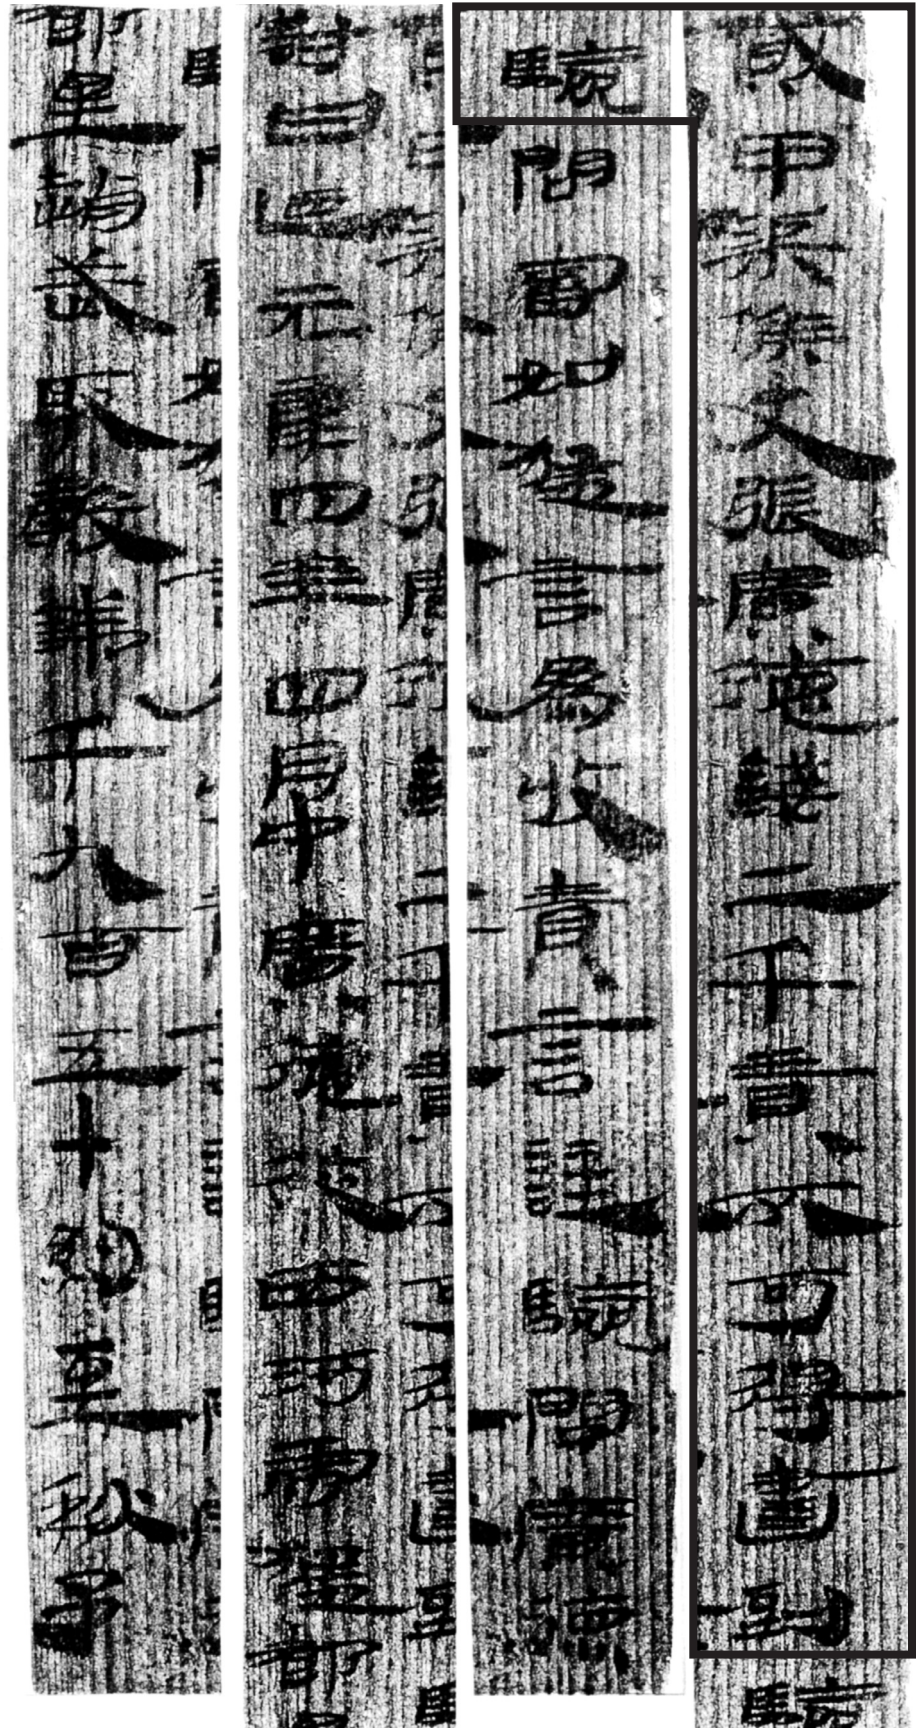 貣甲渠候史張廣德錢二千責不可得書到
驗問審如猛言為收責言謹驗問廣德
對曰迺元康四年四月中廣德從西河虎猛
都里趙武取穀錢千九百五十約至秋予